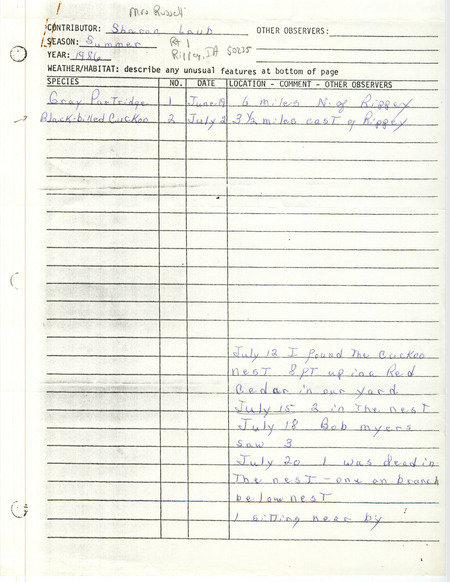 Mrs Russell
CONTRIBUTOR: Sharon Laub OTHER OBSERVERS:
SEASON: Summer Rt 1
YEAR: 1986 Rippey, IA 50235
WEATHER/HABITAT: describe any unusual features at bottom of page
SPECIES NO. DATE LOCATION - COMMENT - OTHER OBSERVERS
Gray Partridge 1 June 19 6 miles N. of Rippey
Black-billed Cuckoo 2 July 2 3 1/2 miles east of Rippey
July 12 I found the Cuckoo
nest 8 FT up in a Red
Cedar in our yard
July 15 2 in the nest
July 18 Bob Myers
saw 3
July 20 1 was dead in
the nest - one on branch
below nest
1 sitting near by